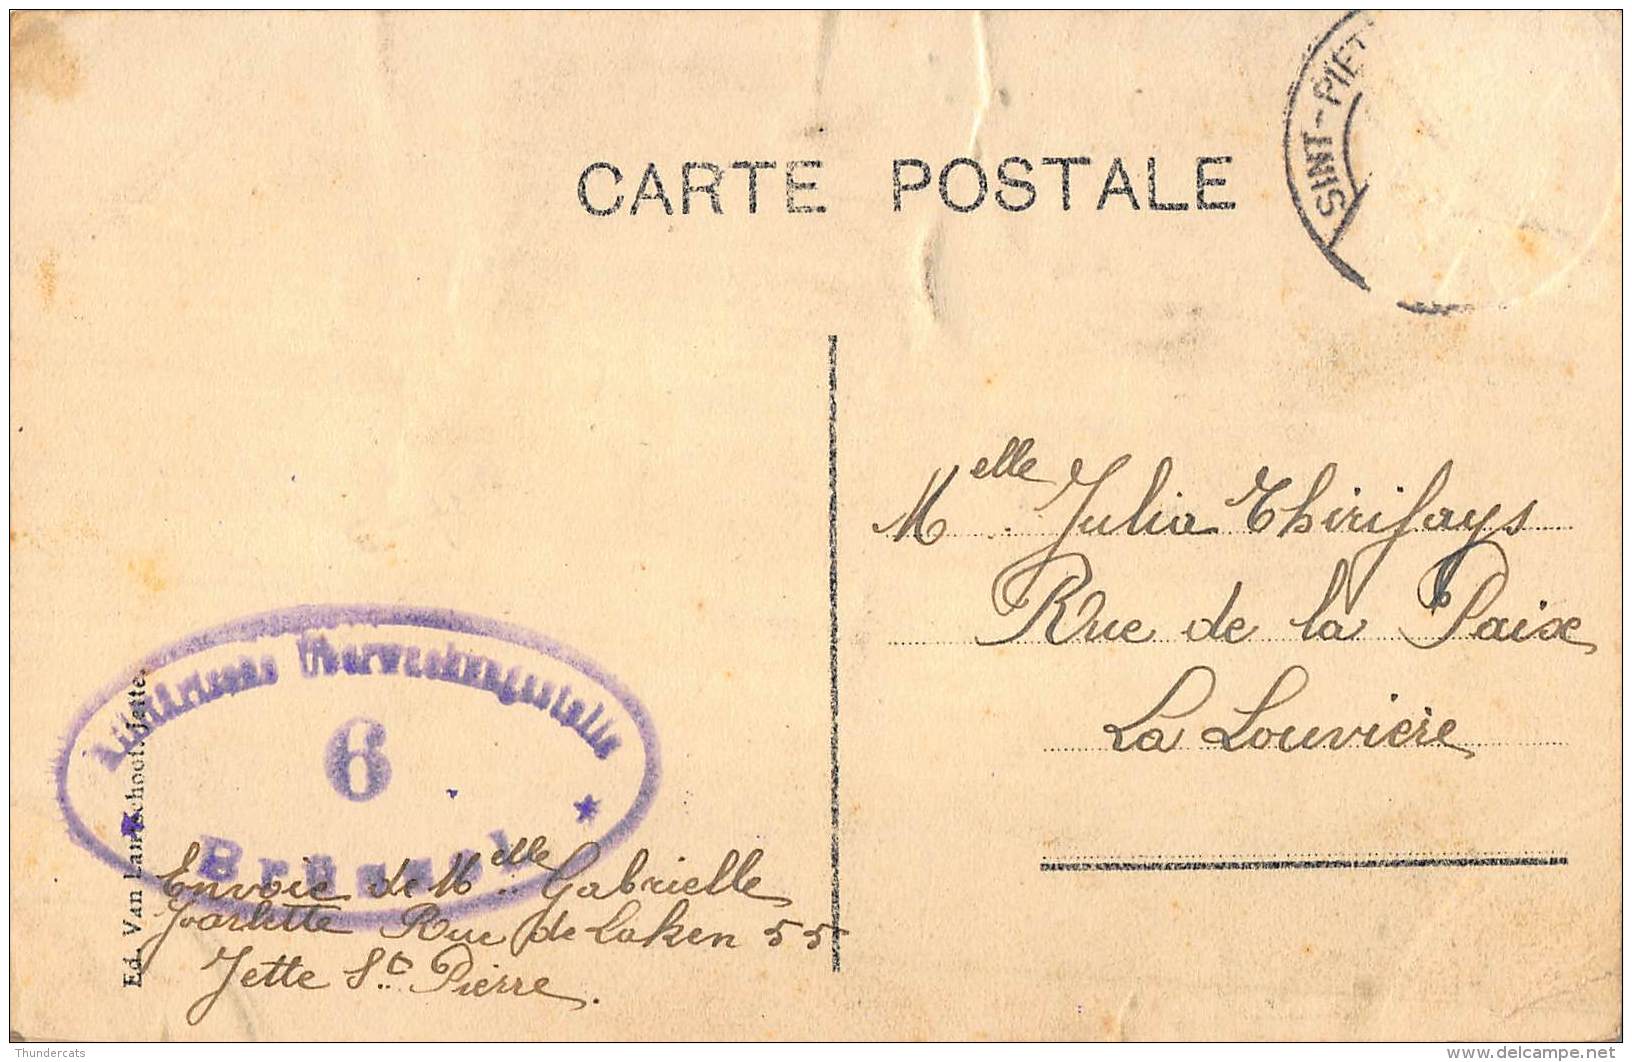 SINT-PIET
CARTE POSTALE
Melle Julia Thirifays
Rue de la Paix
La Louvière
Militärische Überwachungsstelle
6
Brüssel
Envoie de Melle Gabrielle
Rue de Laken 55
Jette St. Pierre.
Ed. Van Lair-Schoof, Jette.
Thundercats
delcampe.net